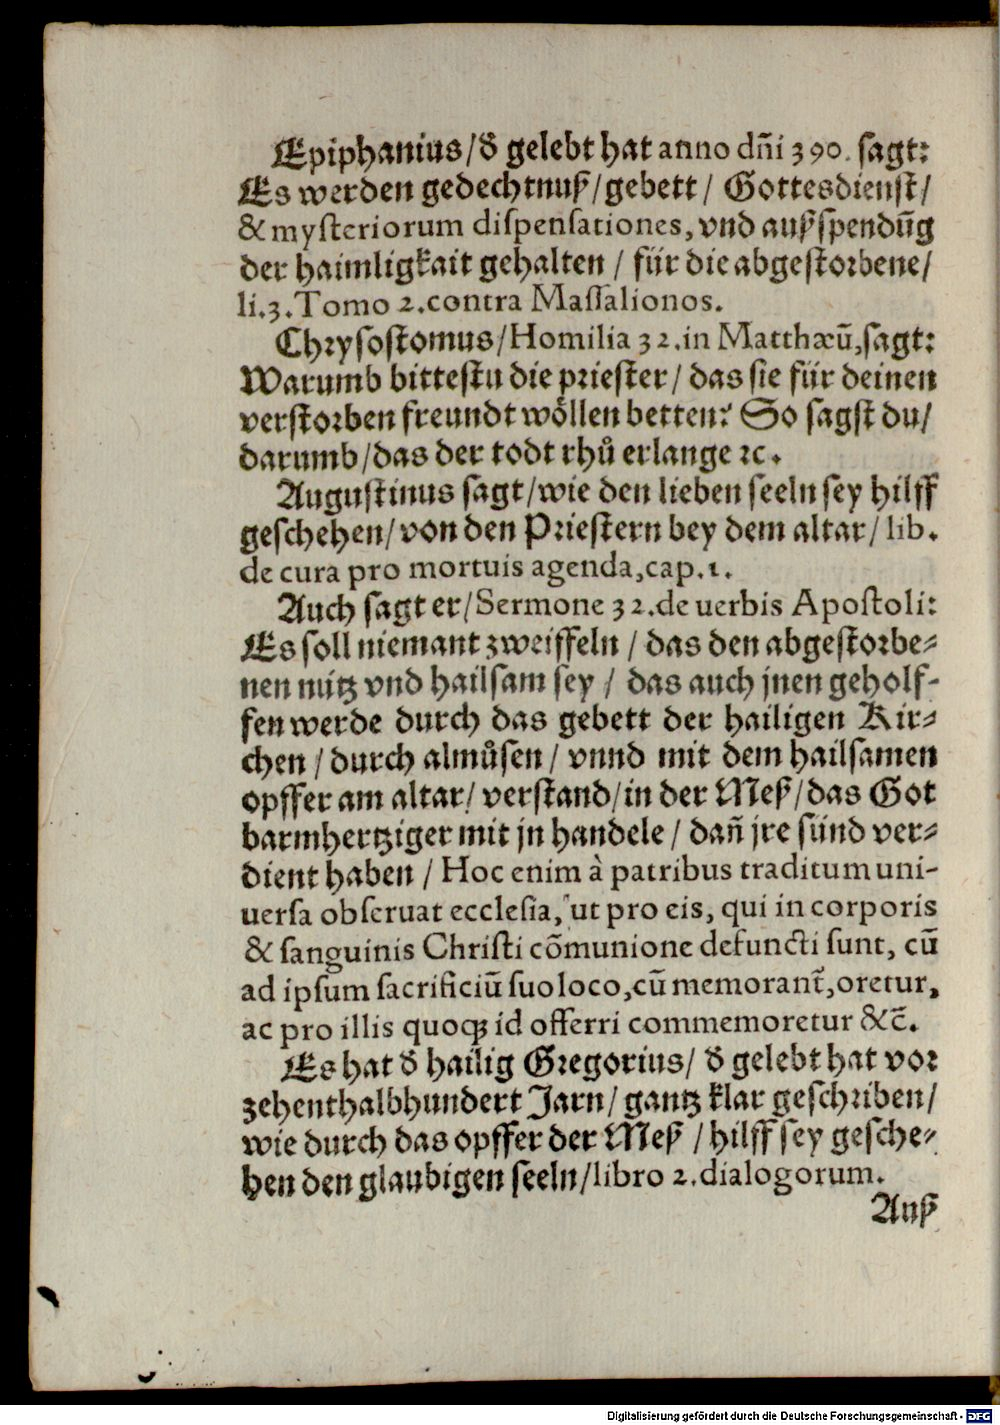 Epiphanius/ď gelebt hat anno dñi 390. sagt:
Es werden gedechtnuß/gebett/ Gottesdienst/
& mysteriorum dispensationes, vnd außspendūg
der haimligkait gehalten / für die abgestorbene/
li.3.Tomo 2.contra Massalionos.
Chrysostomus/Homilia 32.in Matthæū,sagt:
Warumb bittestu die priester/ das sie für deinen
verstorben freundt wöllen betten? So sagst du/
darumb/das der todt rhů erlange ꝛc.
Augustinus sagt/wie den lieben seeln sey hilff
geschehen/von den Priestern bey dem altar/ lib.
de cura pro mortuis agenda,cap.1.
Auch sagt er/Sermone 32.de uerbis Apostoli:
Es soll niemant zweiffeln / das den abgestorbe-
nen nütz vnd hailsam sey / das auch jnen geholf-
fen werde durch das gebett der hailigen Kir-
chen / durch almůsen / vnnd mit dem hailsamen
opffer am altar/ verstand/in der Meß/das Got
barmhertziger mit jn handele / dañ jre sünd ver-
dient haben / Hoc enim à patribus traditum uni-
uersa obseruat ecclesia, ut pro eis, qui in corporis
& sanguinis Christi cōmunione defuncti sunt, cū
ad ipsum sacrificiū suo loco,cū memorant̃,oretur,
ac pro illis quoqꝫ id offerri commemoretur &c̃.
Es hat ď hailig Gregorius/ ď gelebt hat vor
zehenthalbhundert Jarn/ gantz klar geschriben/
wie durch das opffer der Meß / hilff sey gesche-
hen den glaubigen seeln/libro 2.dialogorum.
Auß
Digitalisierung gefördert durch die Deutsche Forschungsgemeinschaft - DFG